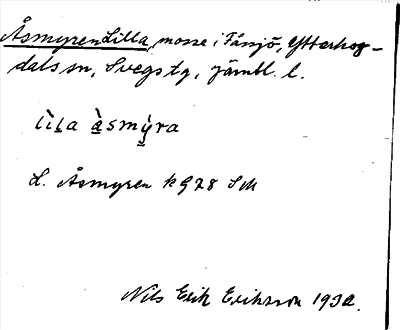 Åsmyren Lilla, mosse i Fåssjö, Ytterhog-
dals sn, Svegs tg, Jämtl. l.
lìla àsmỳra
L. Åsmyren k 928 SM
Nils Erik Eriksson 1932.